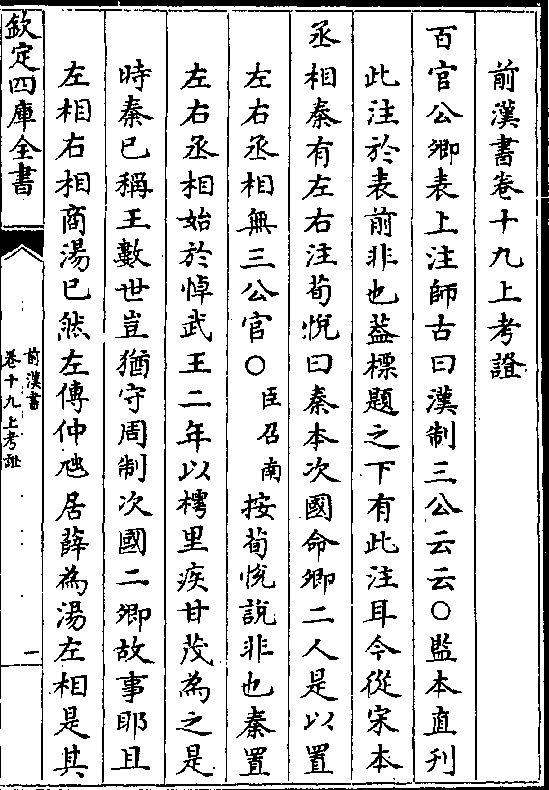 前漢書卷十九上考證
百官公卿表上注師古曰漢制三公云云○監本直刋
此注於表前非也葢標題之下有此注耳今從宋本
丞相秦有左右注荀悅曰秦本次國命卿二人是以置
左右丞相無三公官○臣召南按荀悅說非也秦置
左右丞相始於悼武王二年以樗里疾甘茂為之是
時秦已稱王數世豈猶守周制次國二卿故事耶且
左相右相商湯已然左傳仲虺居薛為湯左相是其
欽定四庫全書
前漢書
卷十九上考證
一